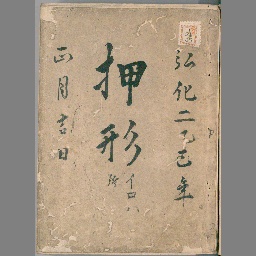 弘化二乙巳年
押形
イロハ
正月吉日